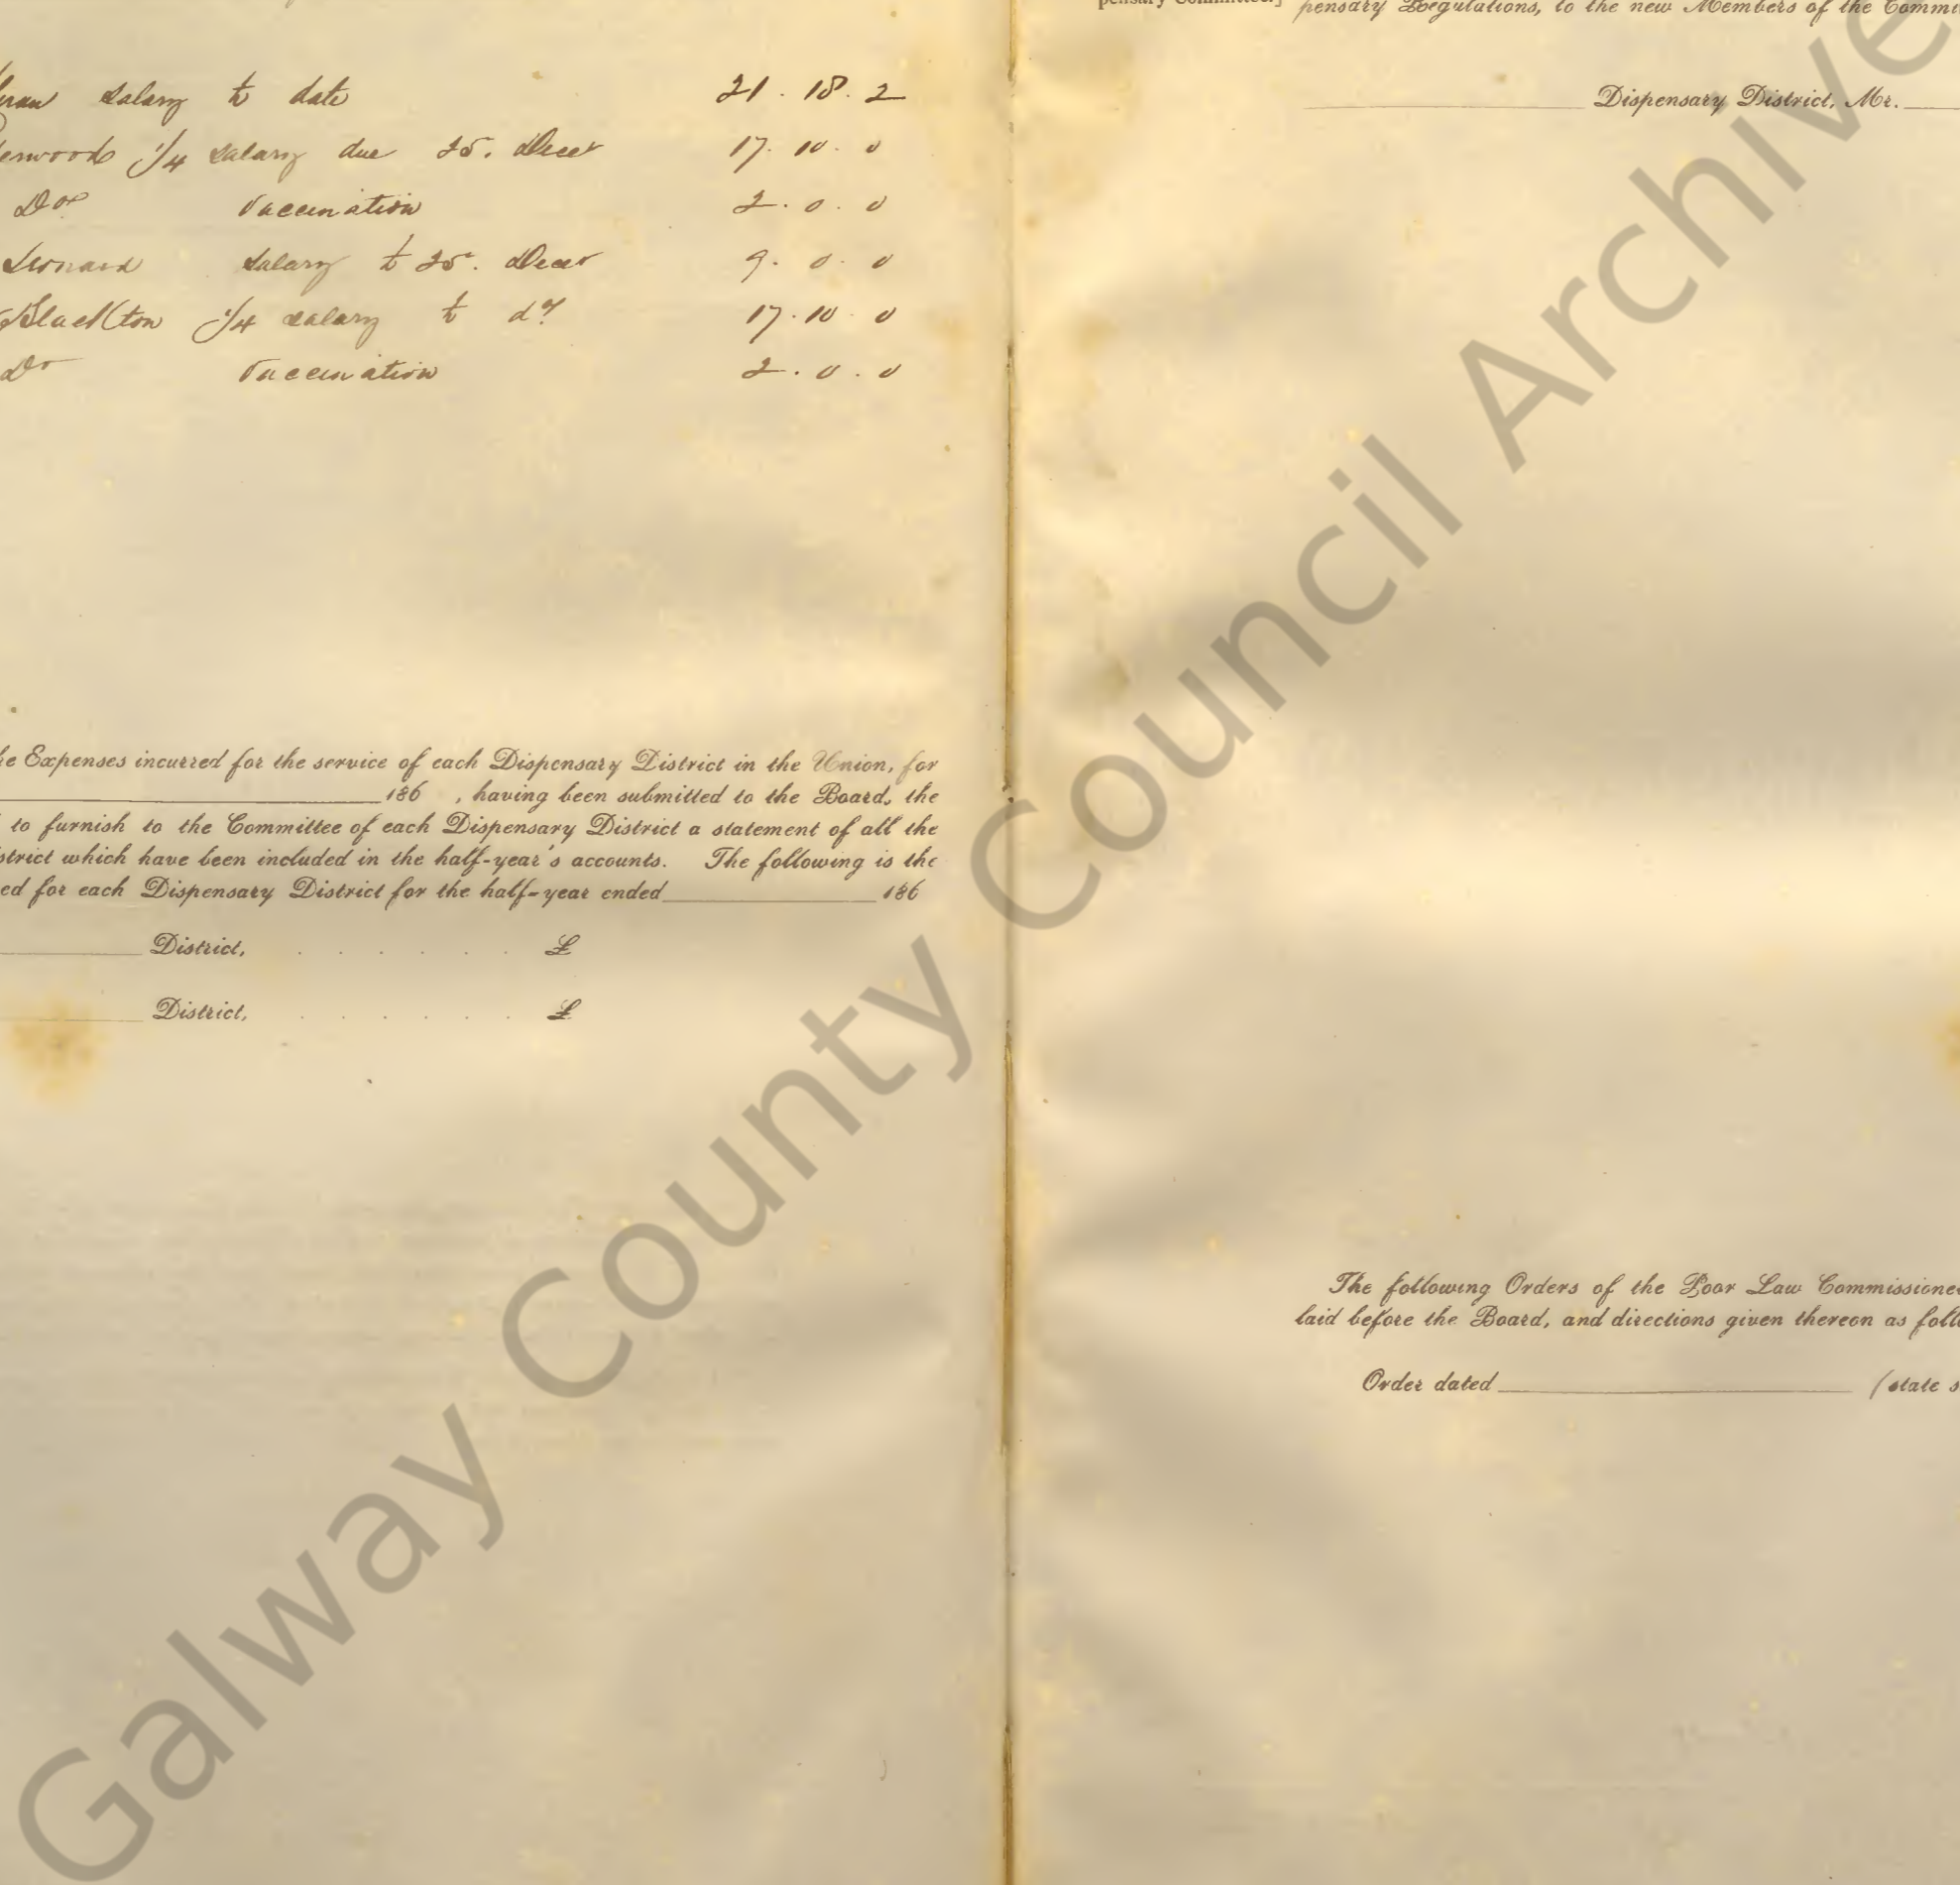 salary to date 21 . 18 . 2
erwood 1/4 salary due 25. Decr 17. 10 . 0
Do Vaccination 2 . 0 . 0
Leonard salary to 25. Decr 9. 0 . 0
1/4 salary to do 17 . 10 . 0
Do Vaccination 2 . 0 . 0
he Expenses incurred for the service of each Dispensary District in the Union, for
186 , having been submitted to the Board, the
to furnish to the Committee of each Dispensary District a statement of all the
strict which have been included in the half-year's accounts. The following is the
ed for each Dispensary District for the half-year ended 186
District, . . . . . . £
District, . . . . . . £
pensary Committee.]
pensary Regulations, to the new Members of the Commi
Dispensary District, Mr.
The following Orders of the Poor Law Commissione
laid before the Board, and directions given thereon as follo
Order dated (state s
Galway County Council Archive